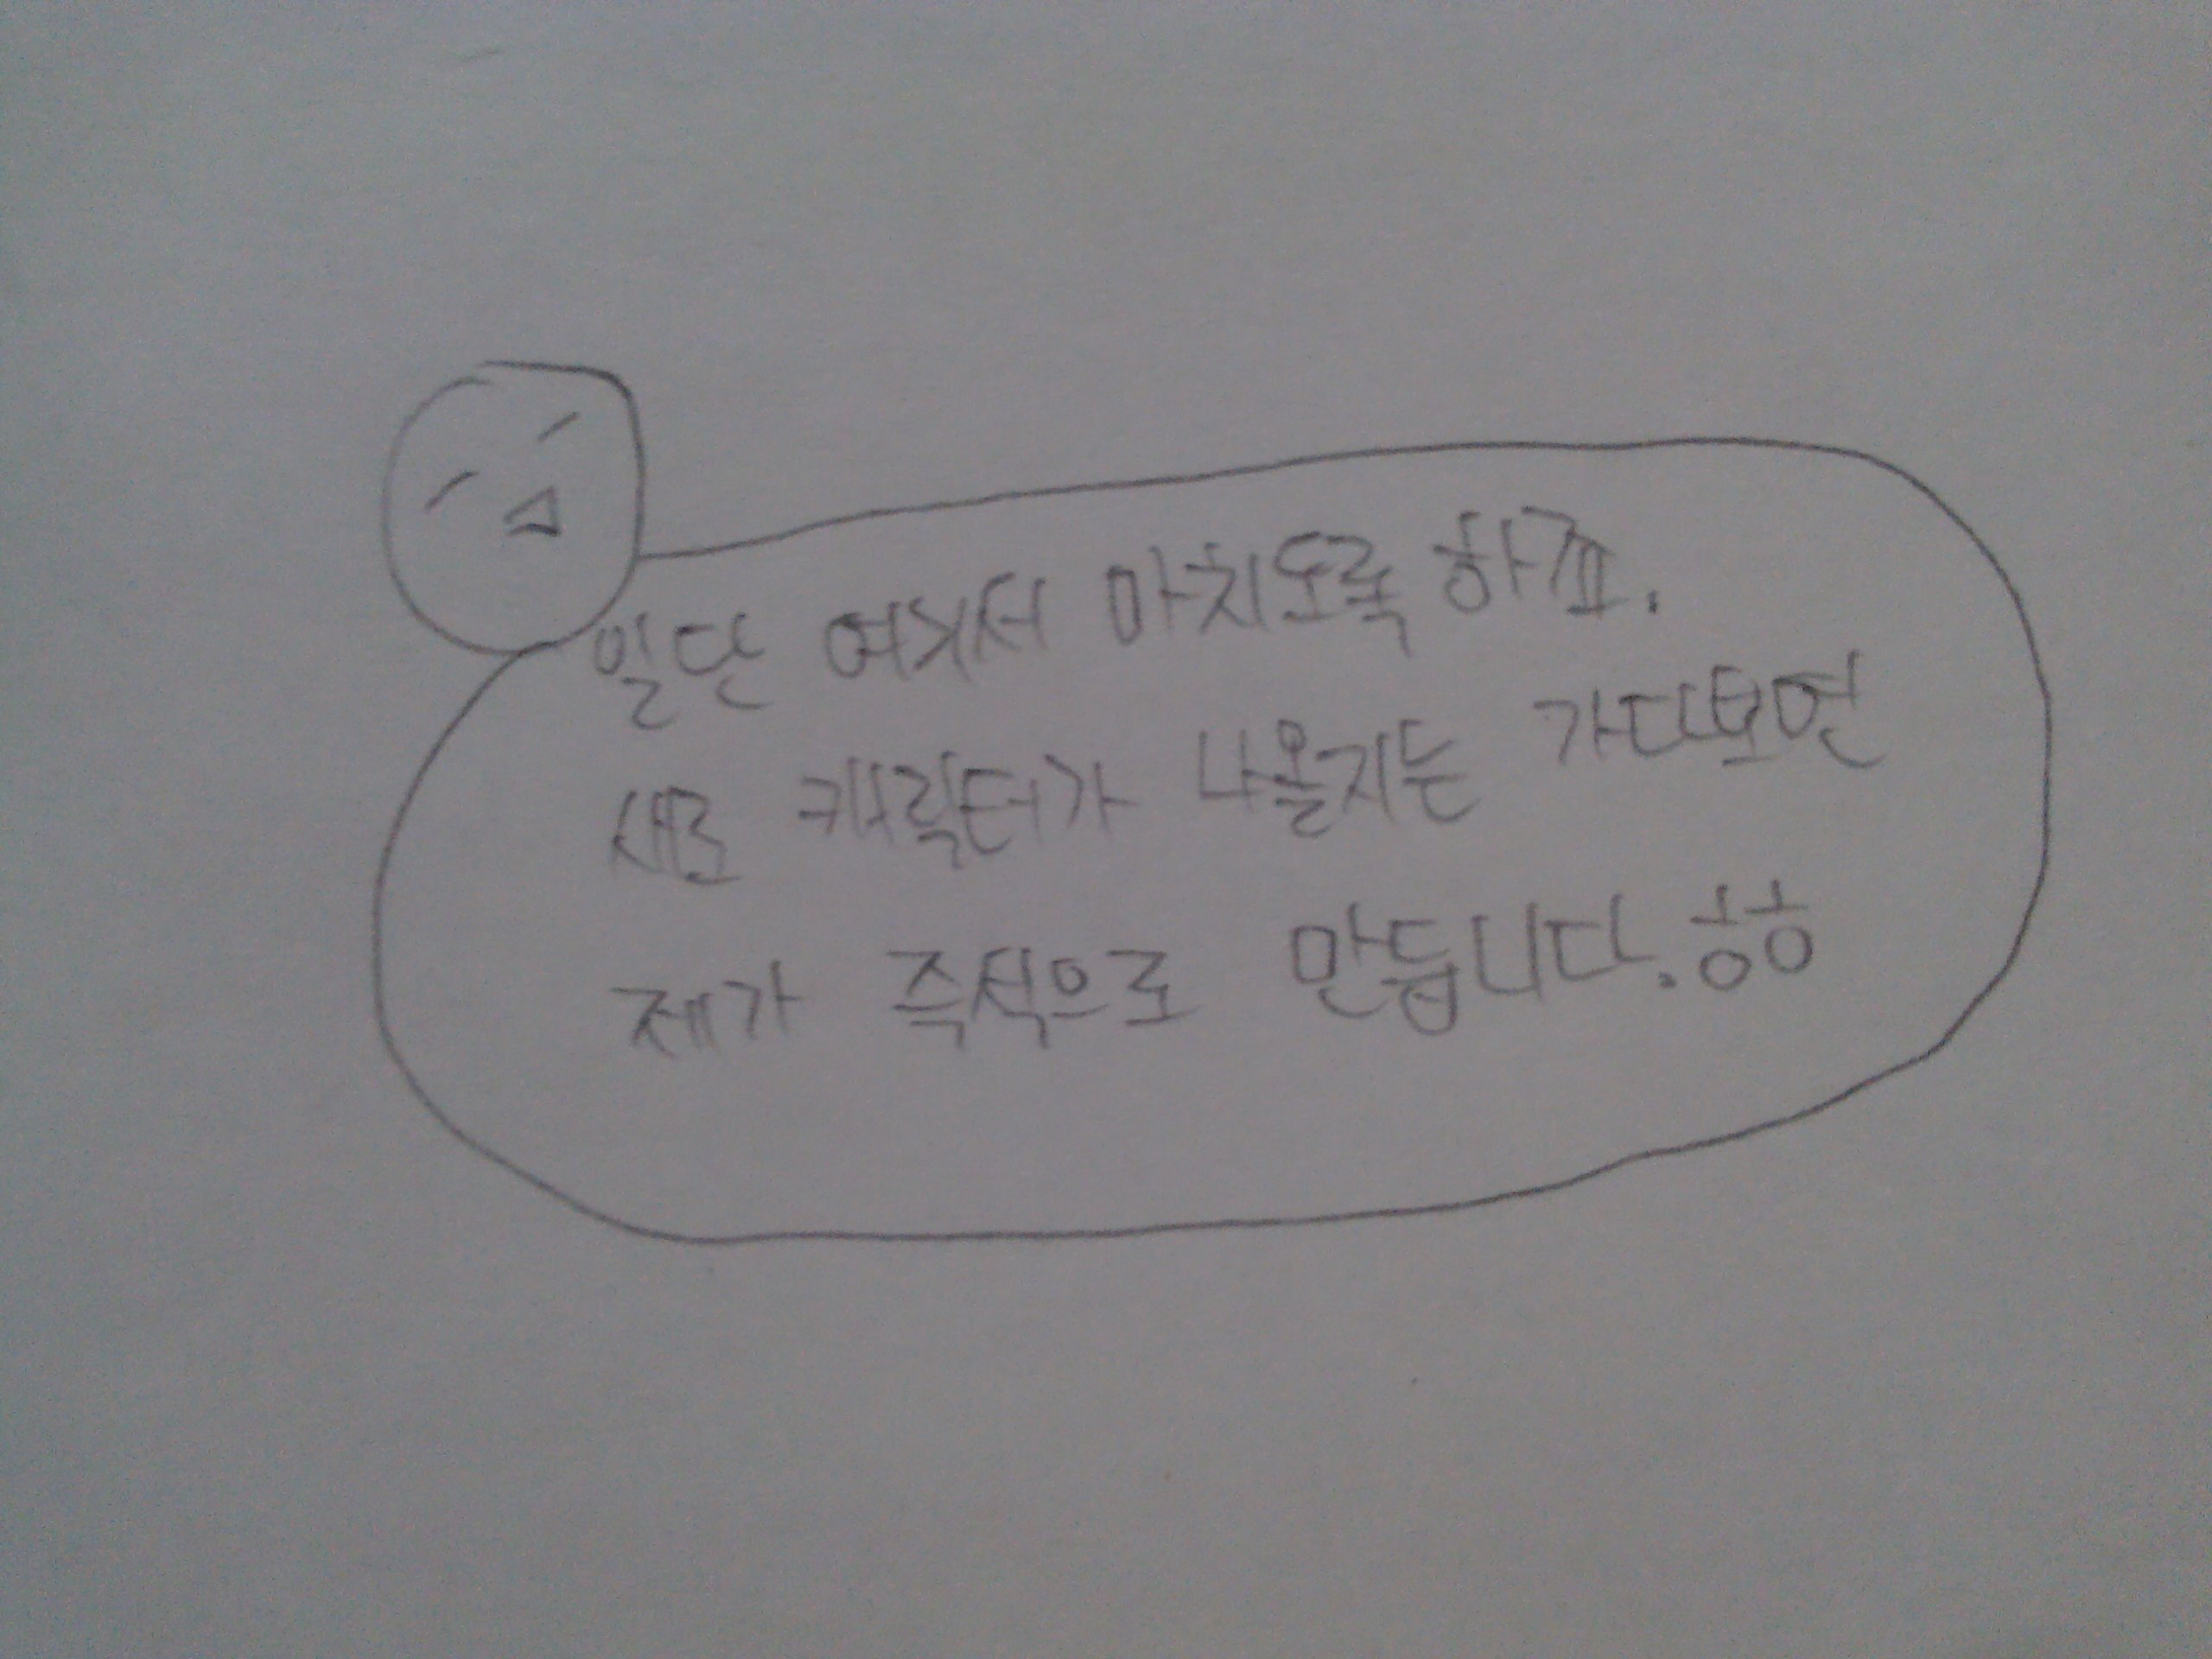 일단 여기서 마치도록 하죠.
새로 캐릭터가 나올지는 가다보면
제가 즉석으로 만듭니다.ㅎㅎ